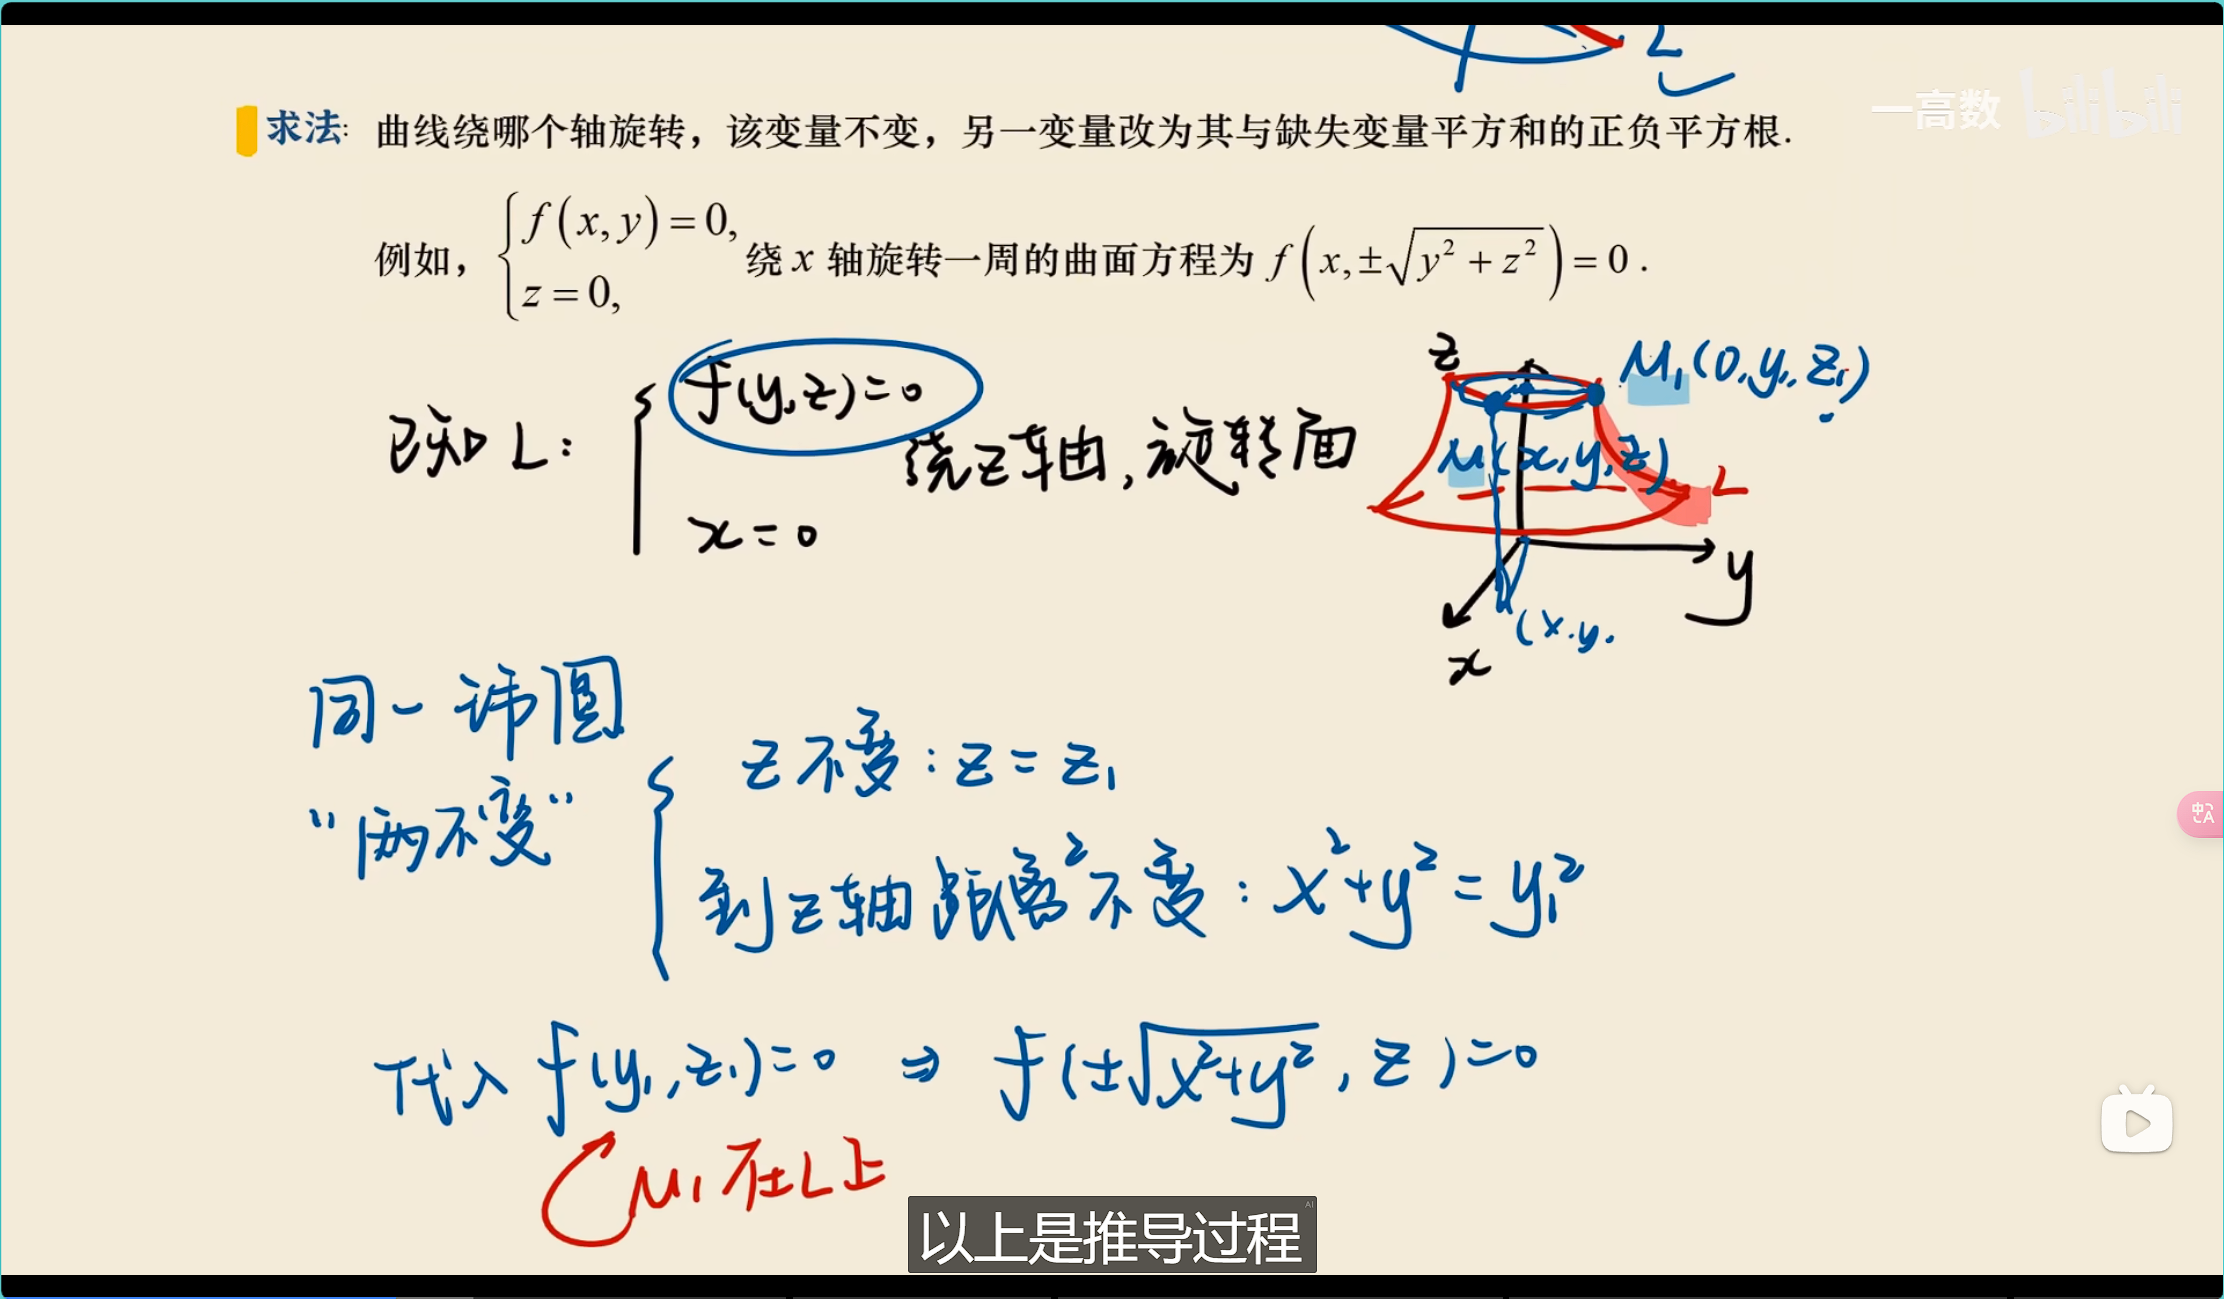 L
一高数 bilibili
求法: 曲线绕哪个轴旋转，该变量不变，另一变量改为其与缺失变量平方和的正负平方根.
例如，{f(x,y)=0, z=0, 绕 x 轴旋转一周的曲面方程为 f(x,±√(y²+z²))=0 .
已知 L: {f(y,z)=0 x=0 绕z轴,旋转面
z
M₁(0,y₁,z₁)
M(x,y,z)
L
y
(x.y.
x
同一纬圆
"两不变"
z不变:z=z₁
到z轴距离²不变:x²+y²=y₁²
代入 f(y₁,z₁)=0 ⇒ f(±√(x²+y²),z)=0
M₁在L上
以上是推导过程
AI
中
A